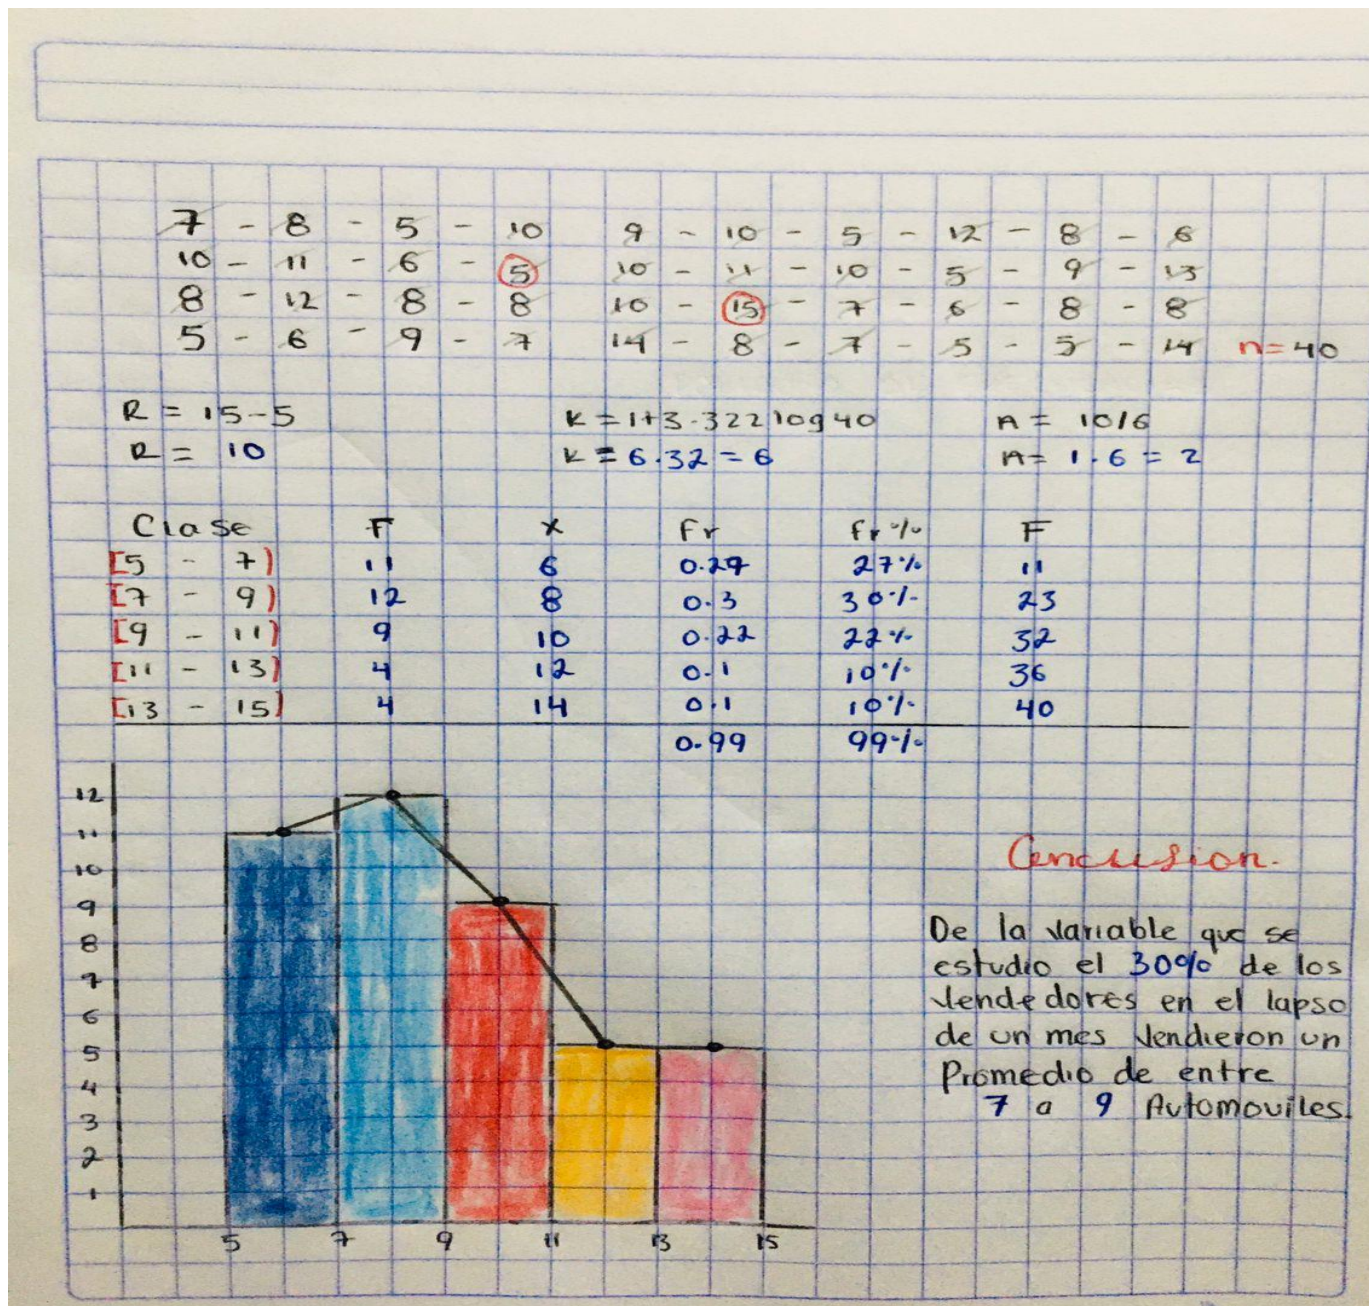 7 - 8 - 5 - 10 9 - 10 - 5 - 12 - 8 - 6
10 - 11 - 6 - 5 10 - 11 - 10 - 5 - 9 - 13
8 - 12 - 8 - 8 10 - 15 - 7 - 6 - 8 - 8
5 - 6 - 9 - 7 14 - 8 - 7 - 5 - 5 - 14 n=40
R = 15-5 K=1+3.322log40 A= 10/6
R = 10 K=6.32=6 A= 1.6=2
Clase F X Fr Fr% F
[5 - 7) 11 6 0.27 27% 11
[7 - 9) 12 8 0.3 30% 23
[9 - 11) 9 10 0.22 22% 32
[11 - 13) 4 12 0.1 10% 36
[13 - 15) 4 14 0.1 10% 40
0.99 99%
12
11
10
9
8
7
6
5
4
3
2
1
5 7 9 11 13 15
Conclusion.
De la variable que se
estudio el 30% de los
vendedores en el lapso
de un mes vendieron un
Promedio de entre
7 a 9 Automoviles.